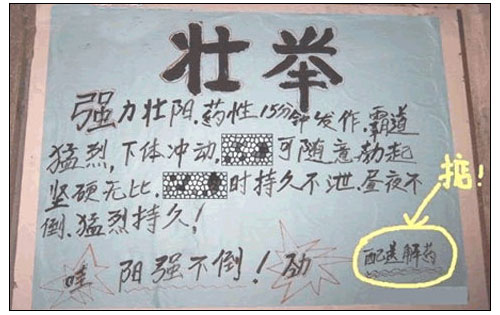 壮举
强力壮阳.药性15分钟发作.霸道
猛烈,下体冲动,可随意勃起
坚硬无比.时持久不泄.昼夜不
倒.猛烈持久!
掂!
哇 阳强不倒!劲
配送解药